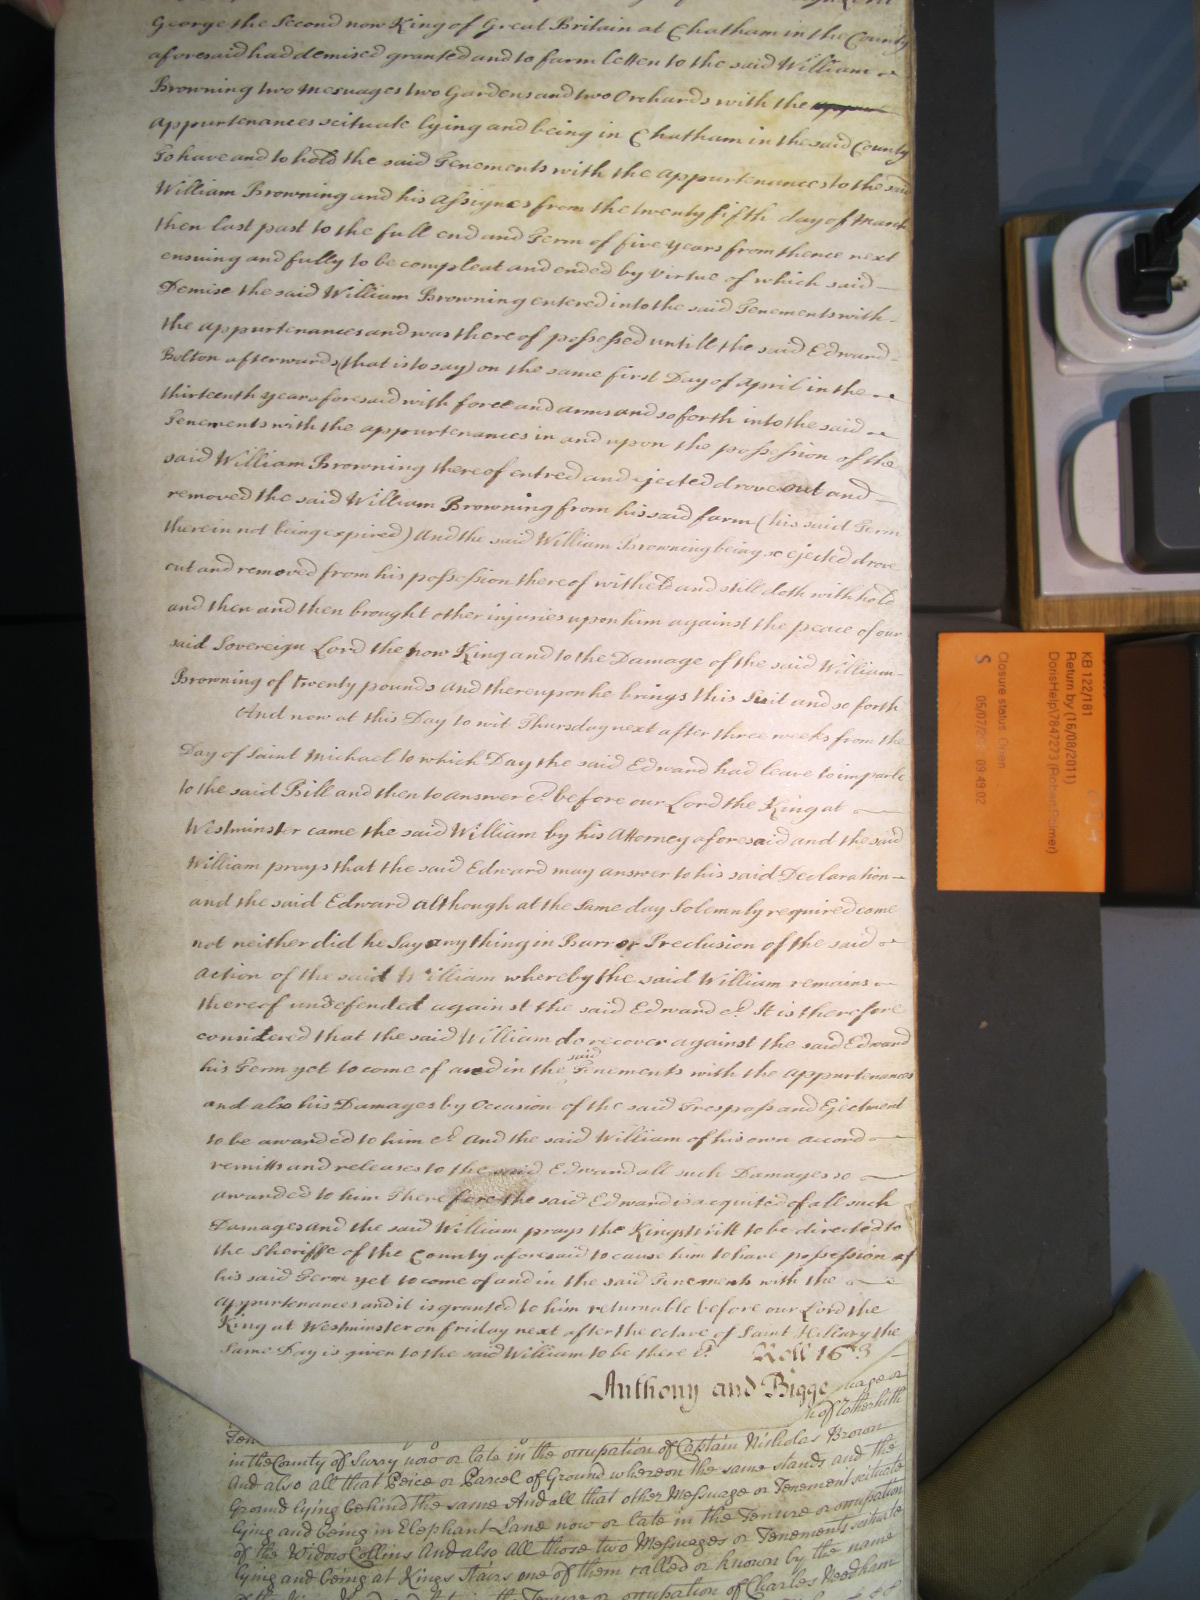 George the Second now King of Great Britain at Chatham in the County
aforesaid had demised granted and to farm letten to the said William
Browning two Mesuages two Gardens and two Orchards with the
Appurtenances scituate lying and being in Chatham in the said County
To have and to hold the said Tenements with the Appurtenances to the said
William Browning and his Assignes from the twenty fifth day of March
then last past to the full end and Term of five years from thence next
ensuing and fully to be compleat and ended by virtue of which said
Demise the said William Browning entered into the said Tenements with
the Appurtenances and was thereof possessed untill the said Edward
Bolton afterwards (that is to say) on the same first Day of April in the
thirteenth year aforesaid with force and arms and so forth into the said
Tenements with the appurtenances in and upon the possession of the
said William Browning thereof entred and ejected drove out and
removed the said William Browning from his said farm (his said Term
therein not being expired) And the said William Browning being so ejected drove
out and removed from his possession thereof witheld and still doth withhold
and then and then brought other injuries upon him against the peace of our
said Sovereign Lord the now King and to the Damage of the said William
Browning of twenty pounds And thereupon he brings this Suit and so forth
And now at this Day to wit Thursday next after three weeks from the
Day of Saint Michael to which Day the said Edward had leave to imparle
to the said Bill and then to answer &c. before our Lord the King at
Westminster came the said William by his Attorney aforesaid and the said
William prays that the said Edward may answer to his said Declaration
and the said Edward although at the same day Solemnly required come
not neither did he Say any thing in Barr or Preclusion of the said
Action of the said William whereby the said William remains
thereof undefended against the said Edward &c. It is therefore
considered that the said William do recover against the said Edward
his Term yet to come of and in the said Tenements with the Appurtenances
and also his Damages by Occasion of the said Trespass and Ejectment
to be awarded to him &c. And the said William of his own accord
remitts and releases to the said Edward all such Damages so
awarded to him Therefore the said Edward is acquited of all such
Damages and the said William prays the Kings Writt to be directed to
the Sheriffe of the County aforesaid to cause him to have possession of
his said Term yet to come of and in the said Tenements with the
Appurtenances and it is granted to him returnable before our Lord the
King at Westminster on friday next after the octave of Saint Hillary the
Same Day is given to the said William to be there &c. Roll 163
Anthony and Bigge
of Rotherhith
Ten
in the County of Surry now or late in the occupation of Captain Nicholas Brown
And also all that Peice or Parcel of Ground whereon the same stands and the
Ground lying behind the same And all that other Messuage or Tenement scituate
lying and being in Elephant Lane now or late in the Tenure or occupation
of the Widow Collins And also All those two Messuages or Tenements scituate
lying and being at Kings Stairs one of them called or known by the name
in the Tenure or occupation of Charles Needham
KB 122/181
Return by (16/08/2011)
DorisHelp\7847273
Closure status Open
S 05/07/20 09:49:02